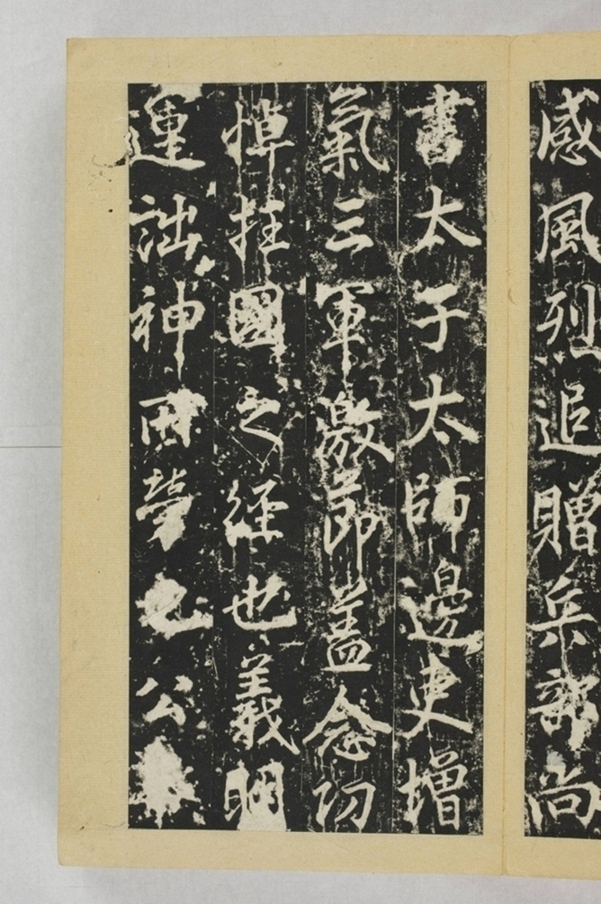 感風烈追贈兵部尚
書太子太師邊吏增
氣三軍激節蓋念功
悼往國之經也義
運詘神夢公